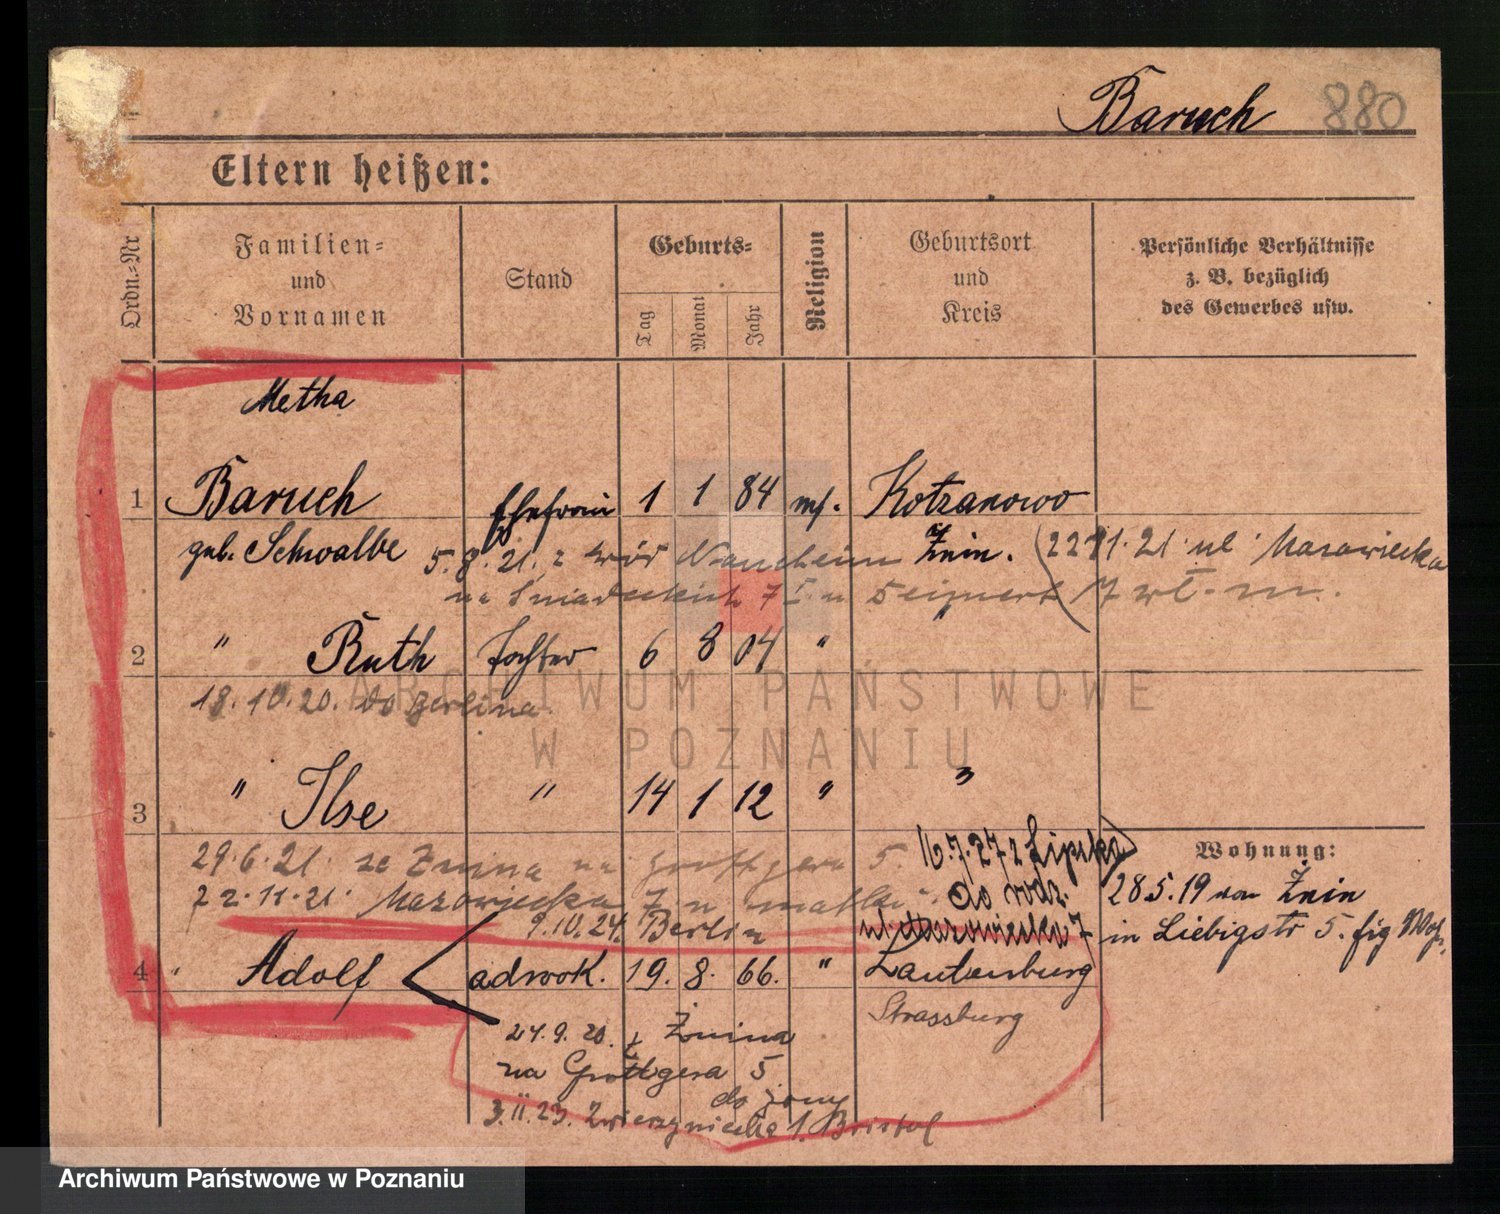 Baruch 880
Eltern heißen:
Ordn.-Nr
Familien-
und
Vornamen
Stand
Geburts-
Tag
Monat
Jahr
Religion
Geburtsort
und
Kreis
Persönliche Verhältnisse
z. B. bezüglich
des Gewerbes usw.
Metha
1 Baruch Ehefrau 1 1 84 mos. Kotzanowo
geb. Schwalbe 5.8.21. z Nauheim Znin. (22 11. 21 ul. Mazowiecka
na Sniadeckich 7 I. u 7 wł. m.
2 " Ruth Tochter 6 8 04 "
18.10.20. do Berlina.
ARCHIWUM PAŃSTWOWE
W POZNANIU
3 " Ilse " 14 1 12 " "
29.6.21. ze Znina na Grottgera 5.
22.11.21. Mazowiecka 7 u matki
9.10.24. Berlin
16.7.27 z Lipska
do rodz.
ul. Mazowiecka 7
Wohnung:
28 5. 19 von Znin
in Liebigstr 5. fig
4 " Adolf adwok. 19. 8. 66. " Lautenburg
Strassburg
24.9.20. z Żnina
na Grottgera 5
do żony
3.II.23. Zwierzyniecka 1. Bristol
Archiwum Państwowe w Poznaniu